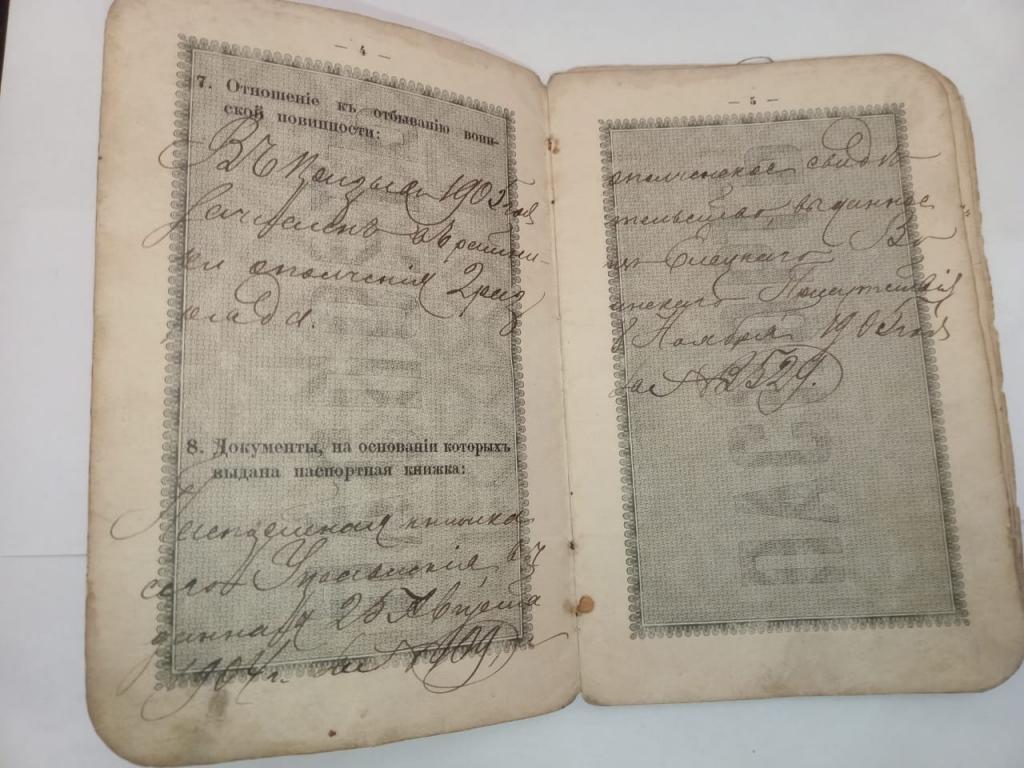 — 4 —
7. Отношеніе къ отбыванію воин-
ской повинности:
Въ 1903 года
зачисленъ въ ратни-
ки ополченія 2 раз
ряда.
8. Документы, на основаніи которыхъ
выдана паспортная книжка:
Паспортная книжка
сего вы
данная 25 Апрѣля
1904 г. за № 109,
— 5 —
ополченское свидѣ
тельство, выданное
Елецкаго Во
инскаго Присутствія
Ноября 1903 года
за № 2529.
ПАС